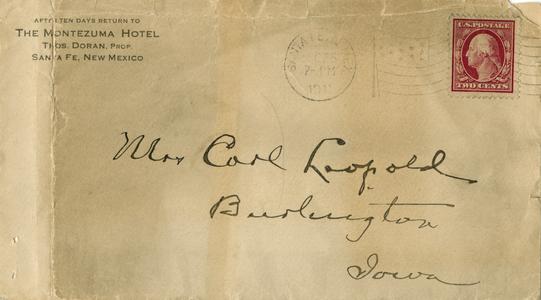 AFTER TEN DAYS RETURN TO
THE MONTEZUMA HOTEL
THOS. DORAN, PROP.
SANTA FE, NEW MEXICO
SANTA FE
U.S. POSTAGE
TWO CENTS
Mrs Carl Leopold
Burlington
Iowa